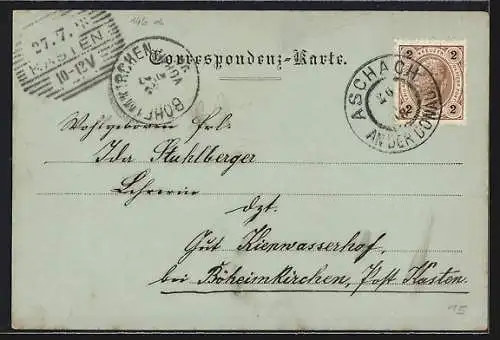 146
27.7.
KASTEN
10-12V
BÖHEIMKIRCHEN
Correspondenz-Karte.
2 2
2 2
ASCHACH
AN DER DONAU
Wohlgeboren Frl.
Ida Stuhlberger
Lehrerin
dzt.
Gut Kienwasserhof,
bei Böheimkirchen, Post Kasten.
15